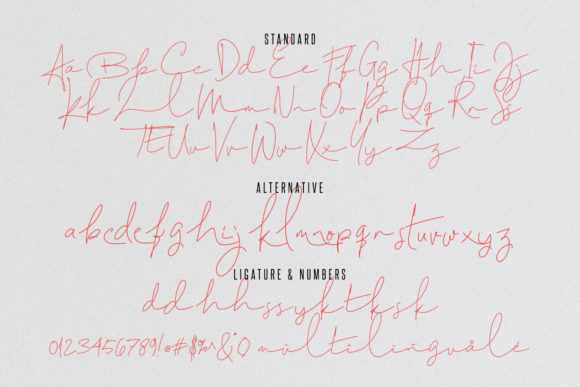 STANDARD
Aa Bb Cc Dd Ee Ff Gg Hh Ii Jj
Kk Ll Mm Nn Oo Pp Qq Rr Ss
Tt Uu Vv Ww Xx Yy Zz
ALTERNATIVE
abcdefghijklmnopqrstuvwxyz
LIGATURE & NUMBERS
dd hh ss yk tk sk
0123456789!@#$%^&*() multilinguåle